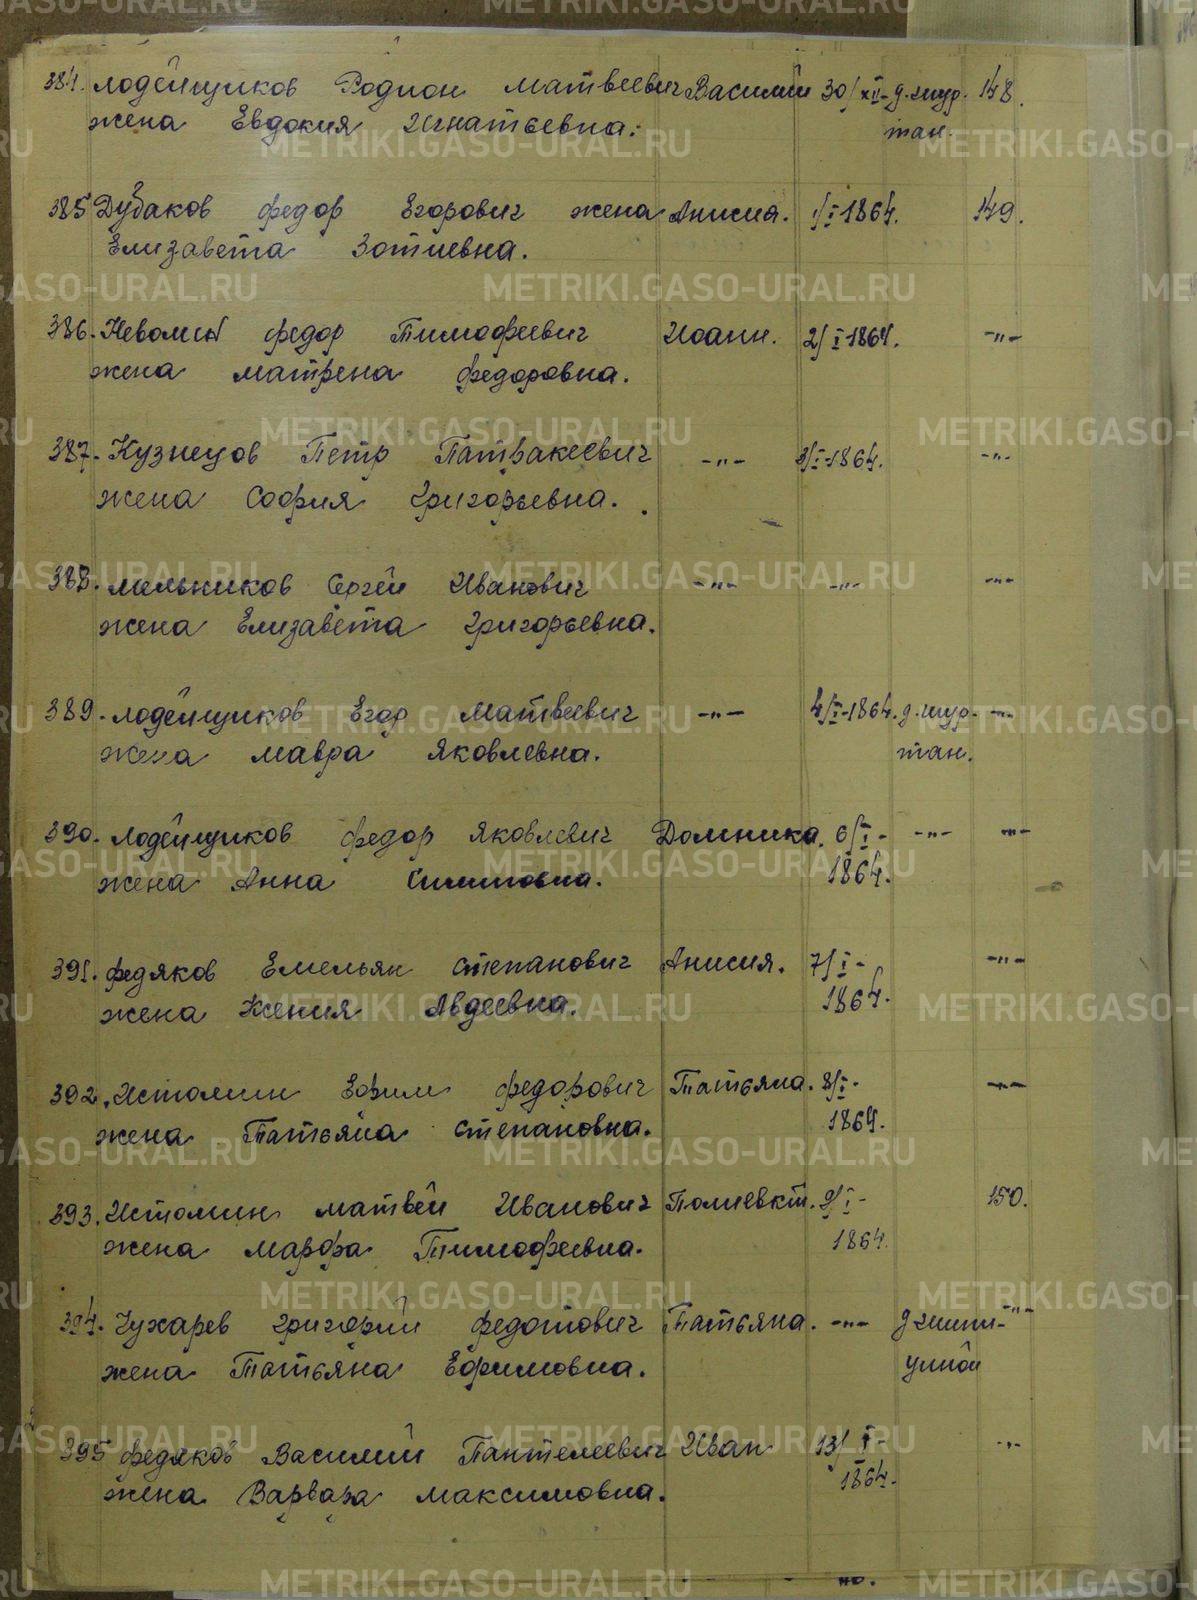 384. Лодейщиков Родион Матвеевич Василий 30/XII- д. Шур- 148.
жена Евдокия Игнатьевна. тан.
385 Дубаков Федор Егорович жена Анисия. 1/I-1864. 149.
Елизавета Зотиевна.
386. Неволин Федор Тимофеевич Иоанн. 2/I-1864. -"-
жена Матрена Федоровна.
387. Кузнецов Петр Патракеевич -"- 3/I-1864. -"-
жена София Григорьевна.
388. Мельников Сергей Иванович -"- -"- -"-
жена Елизавета Григорьевна.
389. Лодейщиков Егор Матвеевич -"- 4/I-1864. д. Шур- -"-
жена Мавра Яковлевна. тан.
390. Лодейщиков Федор Яковлевич Домника. 6/I- -"- -"-
жена Анна 1864.
391. Федяков Емельян Степанович Анисия. 7/I- -"-
жена Ксения Авдеевна. 1864.
392. Истомин Ефим Федорович Татьяна. 8/I- -"-
жена Татьяна Степановна. 1864.
393. Истомин Матвей Иванович Полиевкт. 9/I- 150.
жена Марфа Тимофеевна. 1864.
394. Чухарев Григорий Федотович Татьяна. -"- -"-
жена Татьяна Ефимовна.
395 Федяков Василий Пантелеевич Иван 13/I- -"-
жена Варвара Максимовна. 1864.
METRIKI.GASO-URAL.RU